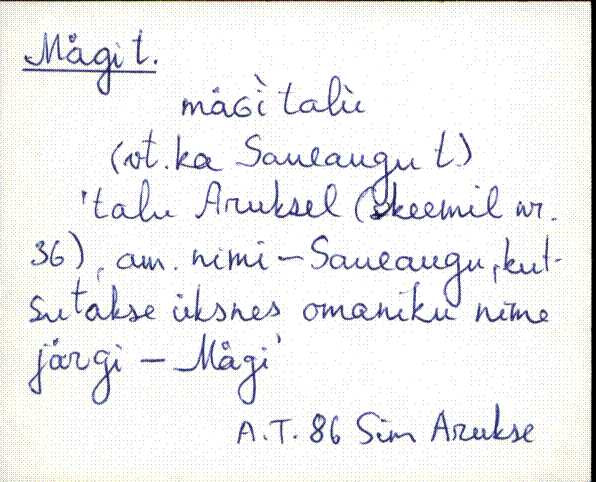 Mägi t.
mäGì talù
(vt. ka Saueaugu t.)
'talu Aruksel (skeemil nr.
36), am. nimi – Saueaugu, kut-
sutakse üksnes omaniku nime
järgi – Mägi'
A.T. 86 Sim Arukse